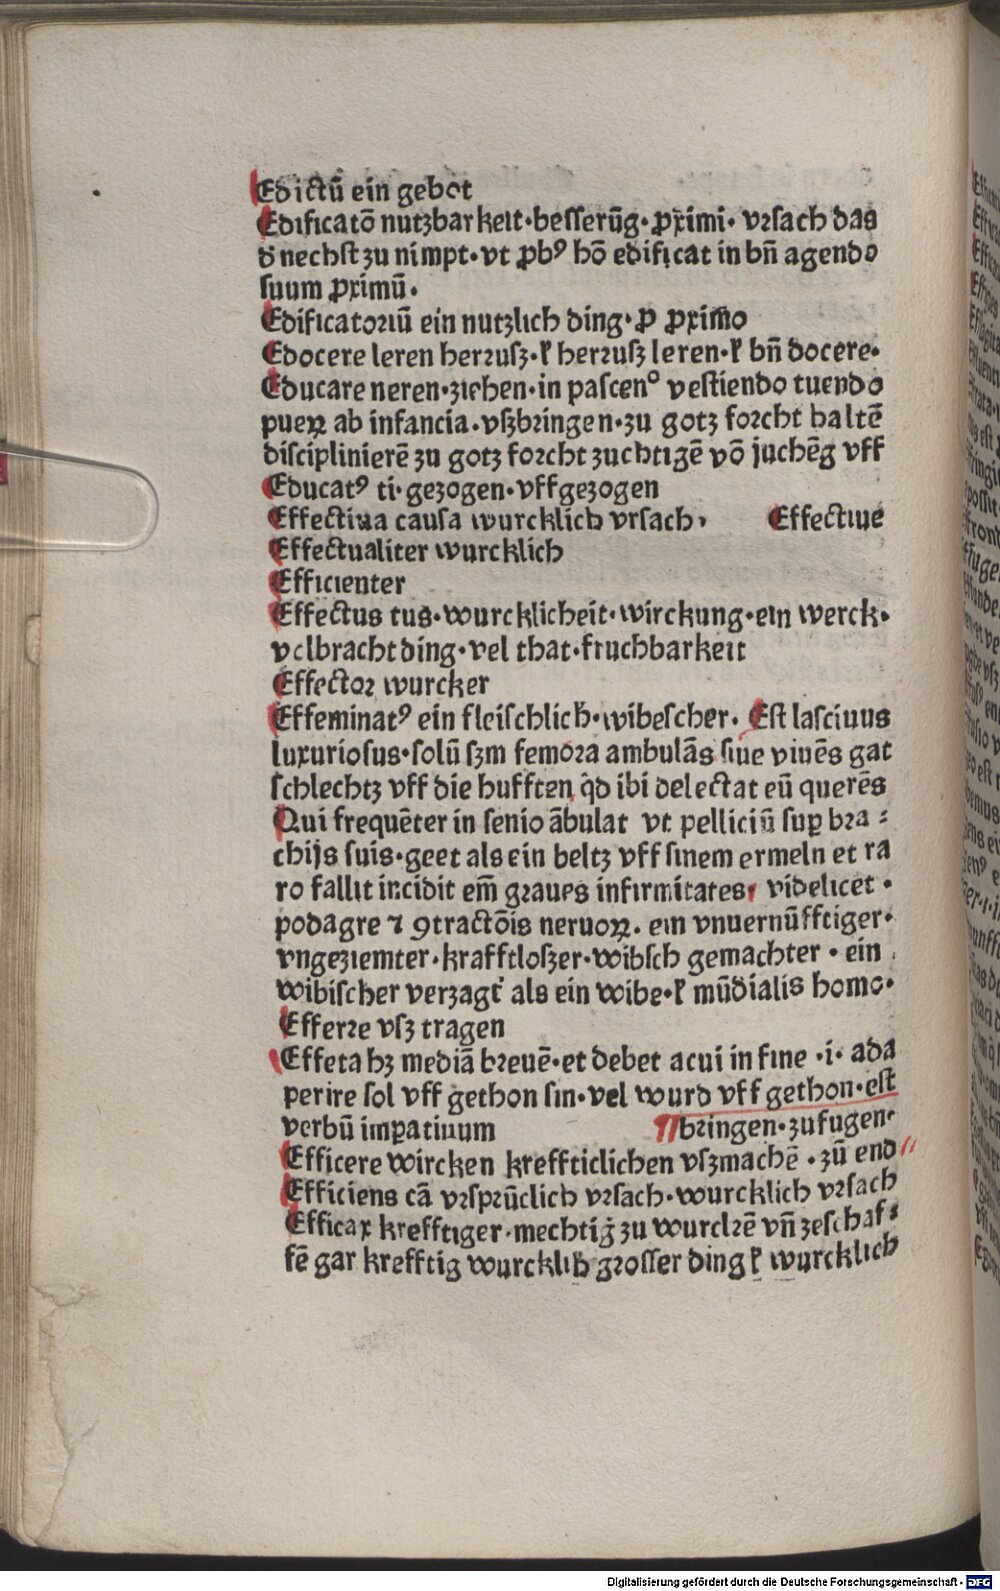 Edictū ein gebot
Edificatō nutzbarkeit·besserūg·ꝓximi·vrsach das
d̄ nechst zu nimpt·vt ꝓbꝰ hō edificat in bn̄ agendo
suum ꝓximū·
Edificatoriū ein nutzlich ding·ꝓ ꝓximo
Edocere leren herrusz·ł herrusz leren·ł bn̄ docere·
Educare neren·ziehen·in pascenᵒ vestiendo tuendo
pueꝝ ab infancia·vszbringen·zu gotz forcht haltē
disciplinierē zu gotz forcht zuchtigē vō juchēg vff
Educatꝰ ti·gezogen·vffgezogen
Effectiua causa wurcklich vrsach· Effectiue
Effectualiter wurcklich
Efficienter
Effectus tus·wurcklicheit·wirckung·ein werck·
volbracht ding·vel that·fruchbarkeit
Effector wurcker
Effeminatꝰ ein fleischlich·wibescher. Est lasciuus
luxuriosus·solū szm femora ambulās siue viuēs gat
schlechtz vff die hufften q̇d ibi delectat eū querēs
Qui frequēter in senio ābulat vt pelliciū suꝑ bra⸗
chijs suis·geet als ein beltz vff sinem ermeln et ra
ro fallit incidit em̄ graues infirmitates videlicet·
podagre ⁊ ꝯtractōis neruoꝝ. ein vnuernūfftiger·
vngeziemter·krafftloszer·wibsch gemachter·ein
wibischer verzagt als ein wibe·ł mūdialis homo·
Efferre vsz tragen
Effeta hꝫ mediā breuē·et debet acui in fine·i·ada
perire sol vff gethon sin·vel wurd vff gethon·est
verbū imꝑatiuum bringen·zufugen·
Efficere wircken kreffticlichen vszmachē·zū end
Efficiens cā vrsprūclich vrsach·wurcklich vrsach
Efficax krefftiger·mechtig zu wurckē vn̄ zeschaf⸗
fē gar krefftig wurcklih grosser ding ł wurcklich
Digitalisierung gefördert durch die Deutsche Forschungsgemeinschaft - DFG